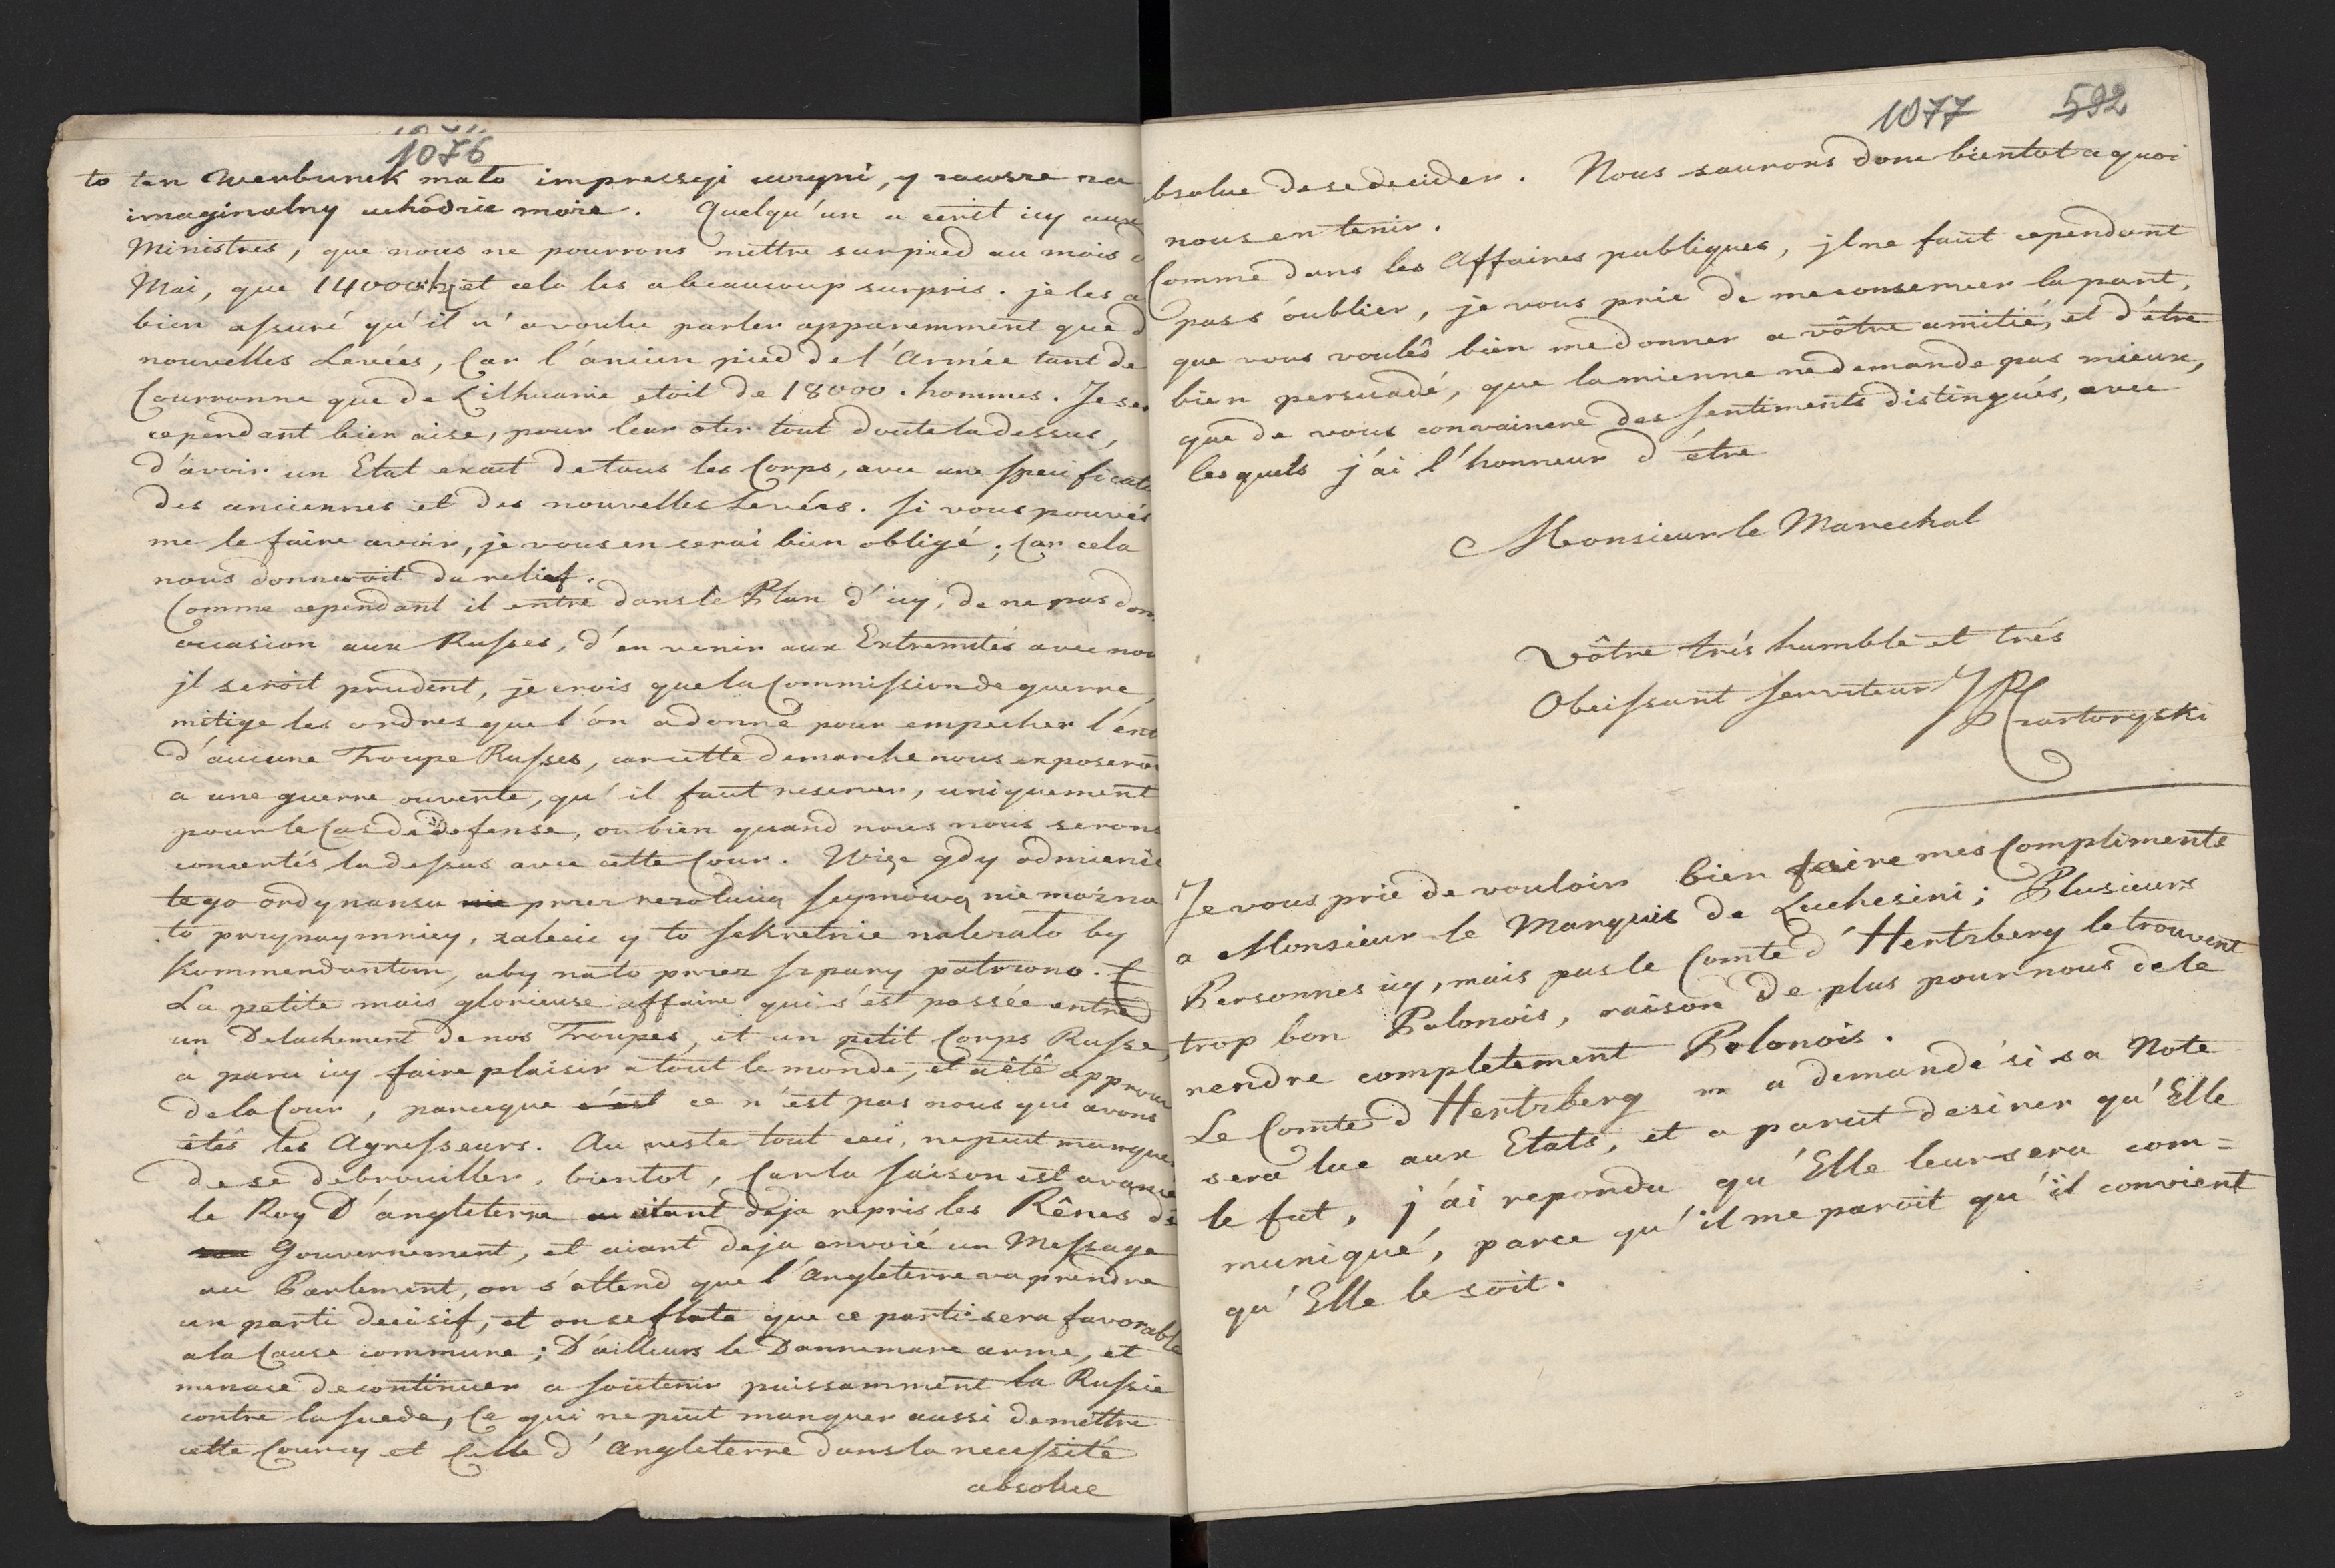 1076
to ten Werbunek mało impressyi uczyni, y zawsze za
imaginalny uchodzic moze. Quelqu'un a ecrit icy aux
Ministres, que nous ne pourrons mettre sur pied au mois d
Mai, que 14000 h. et cela les a beaucoup surpris. je les a
bien assuré qu'il n'a voulu parler apparemment que d
nouvelles Levées, Car l'ancien pied de l'Armée tant de
Courronne que de Lithuanie etoit de 18000. hommes. Je se
cependant bien aise, pour leur oter tout doute la dessus,
d'avoir un Etat exact de tous les Corps, avec une specificat
des anciennes et des nouvelles Levées. Si vous pouvés
me le faire avoir, je vous en serai bien obligé; Car cela
nous donneroit du relief.
Comme cependant il entre dans le Plan d'icy, de ne pas don
occasion aux Russes, d'en venir aux Extremités avec nou
jl seroit prudent, je crois que la Commission de guerre,
mitige les ordres que l'on a donné pour empecher l'ent
d'aucune Troupe Russes, car cette demarche nous exposeroi
a une guerre ouverte, qu'il faut reserver, uniquement
pour le Cas de defense, ou bien quand nous nous serons
concertés la dessus avec cette Cour. Więc gdy odmienic
tego ordynansu nie przez rezolucią seymową nie można
to przynaymniey, zalecic y to sekretnie należało by
Kommendantom, aby na to przez szpary patrzono.
La petite mais glorieuse affaire qui s'est passée entre
un Detachement de nos Troupes, et un petit Corps Russe,
a paru icy faire plaisir a tout le monde, et a été approuv
de la Cour, parceque c'est ce n'est pas nous qui avons
êtés les Agresseurs. Au reste tout ceci, ne peut manquer
de se debrouiller, bientot, Car la saison est avancé
le Roy D'angleterre aiant deja repris les Rênes de
son Gouvernement, et aiant deja envoié un Message
au Parlement, on s'attend que l'Angleterre va prendre
un parti decisif, et on se flate que ce parti sera favorable
a la Cause commune; D'ailleurs le Dannemarc arme, et
menace de continuer a soutenir puissamment la Russie
contre la Suede, Ce qui ne peut manquer aussi de mettre
cette Cour cy et Celle d'Angleterre dans la necessité
absolue
1077 592
bsolue de se decider. Nous saurons donc bientot a quoi
nous en tenir.
Comme dans les Affaires publiques, jl ne faut cependant
pas s'oublier, je vous prie de me conserver la part,
que vous voulés bien me donner a vôtre amitié, et d'être
bien persuadé, que la mienne ne demande pas mieux,
que de vous convaincre des sentiments distingués, avec
les quels j'ai l'honneur d'être
Monsieur le Marechal
Vôtre trés humble et trés
Obeissant serviteur JP Czartoryski
Je vous prie de vouloir bien faire mes Compliments
a Monsieur le Marquis de Luchesini; Plusieurs
Personnes icy, mais pas le Comte d'Hertzberg le trouvent
trop bon Polonois, raison de plus pour nous de le
rendre completement Polonois.
Le Comte d Hertzberg m a demandé si sa Note
sera lue aux Etats, et a parut desirer qu'Elle
le fut, j'ai repondu qu'Elle leur sera com=
muniqué, parce qu'il me paroit qu'il convient
qu'Elle le soit.